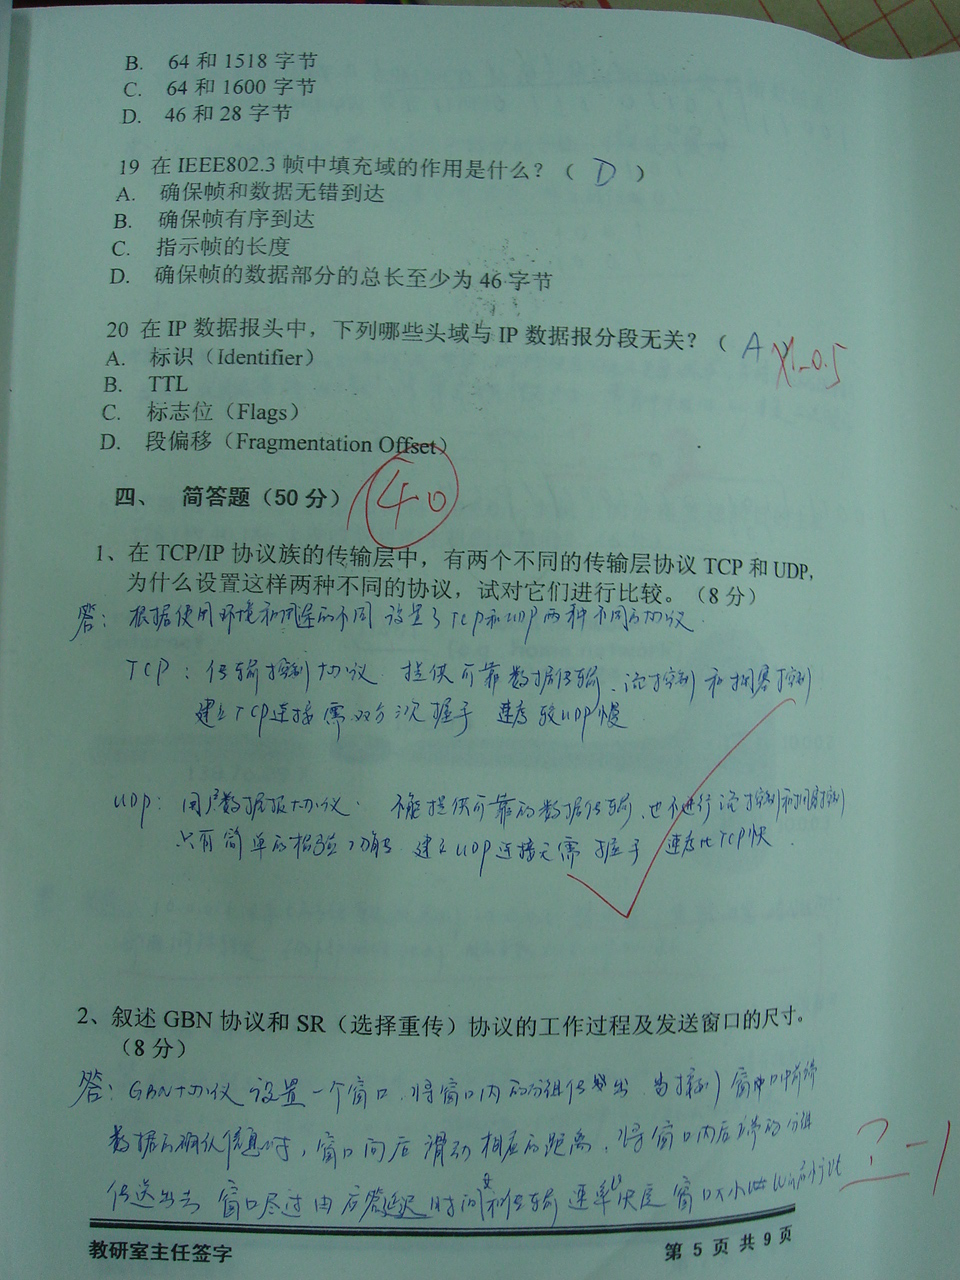 B. 64 和 1518 字节
C. 64 和 1600 字节
D. 46 和 28 字节
19 在 IEEE802.3 帧中填充域的作用是什么？（ D ）
A. 确保帧和数据无错到达
B. 确保帧有序到达
C. 指示帧的长度
D. 确保帧的数据部分的总长至少为 46 字节
20 在 IP 数据报头中，下列哪些头域与 IP 数据报分段无关？（ A ）
-0.5
A. 标识（Identifier）
B. TTL
C. 标志位（Flags）
D. 段偏移（Fragmentation Offset）
四、 简答题（50 分） 40
1、在 TCP/IP 协议族的传输层中，有两个不同的传输层协议 TCP 和 UDP，
为什么设置这样两种不同的协议，试对它们进行比较。（8 分）
答：根据使用环境和用途的不同 设置了 TCP和UDP 两种不同的协议.
TCP：传输控制协议. 提供可靠数据传输、流控制和拥塞控制
建立TCP连接需双方 握手 速度较UDP慢
UDP：用户数据报协议. 不能提供可靠的数据传输、也不进行流控制和拥塞控制
只有简单的检验功能. 建立UDP连接无需握手 速度比TCP快.
2、叙述 GBN 协议和 SR（选择重传）协议的工作过程及发送窗口的尺寸。
（8 分）
答：GBN协议 设置一个窗口. 将窗口内的分组传 出 当接到窗口中前端
数据的确认信息时，窗口向后滑动相应的距离，将窗口内后端的分组
传送出去 窗口尽 由 延迟时间和传输速率决定 窗口大小
? -1
教研室主任签字
第 5 页 共 9 页